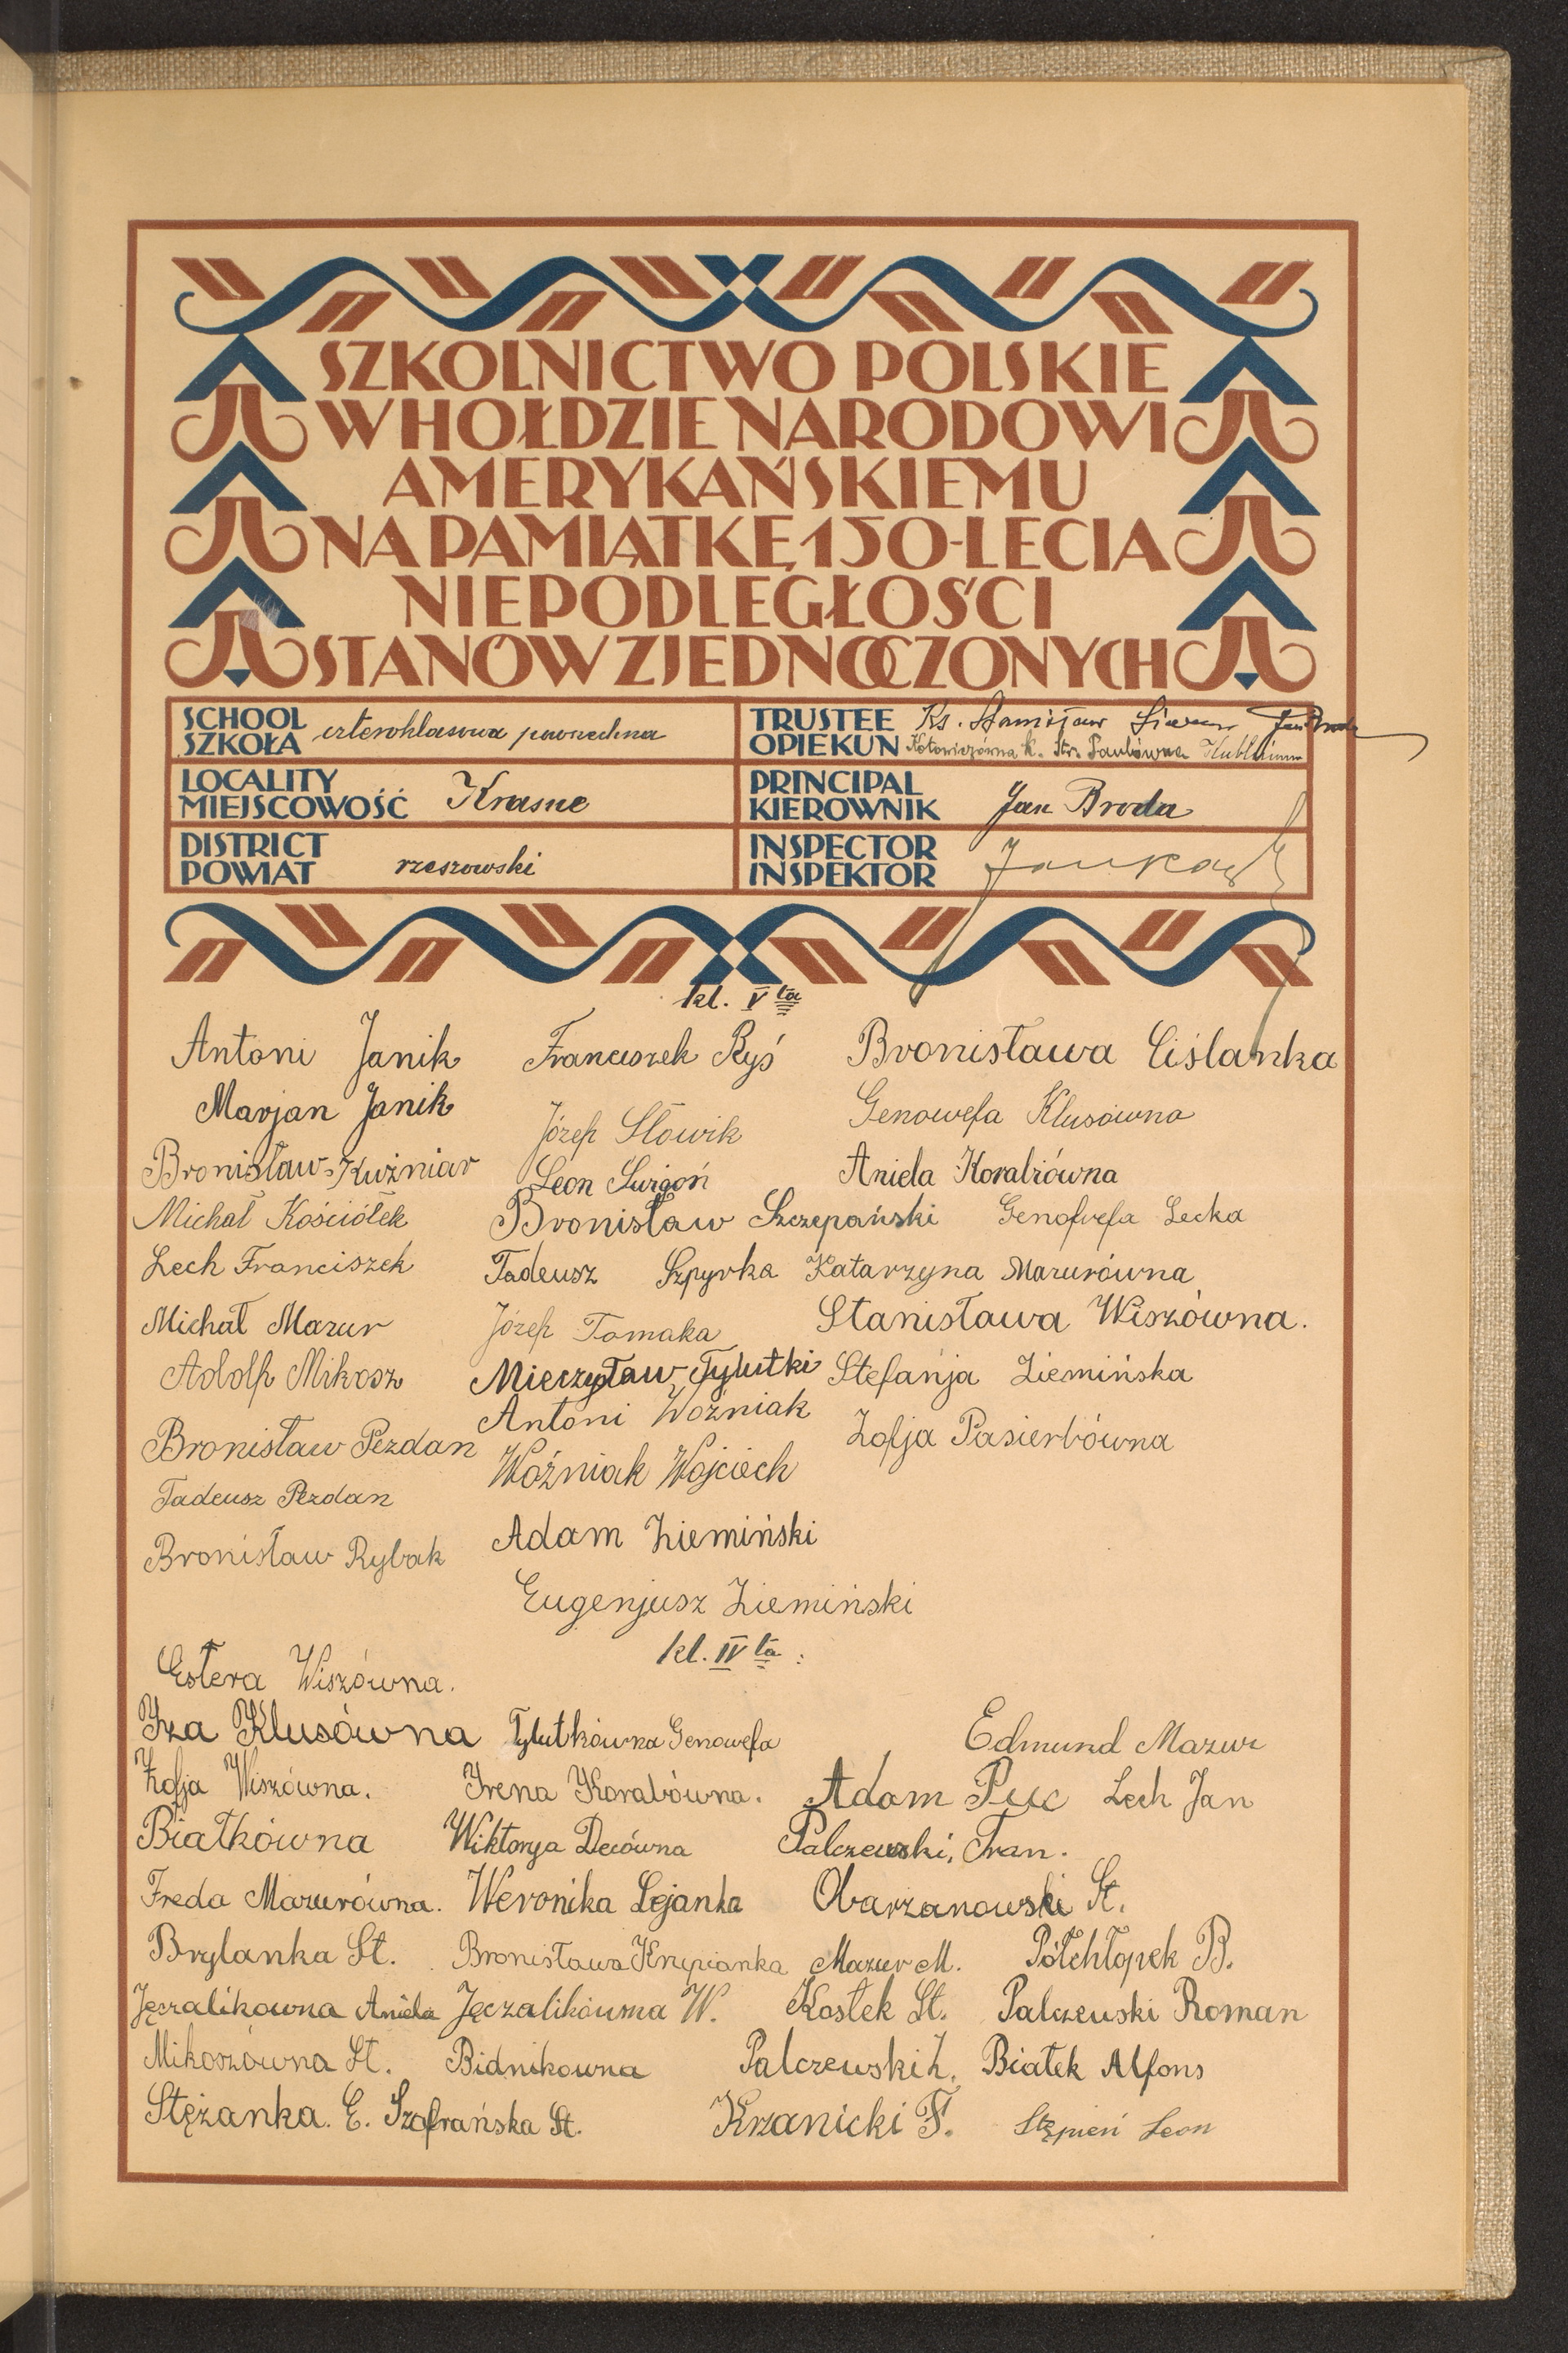 SZKOLNICTWO POLSKIE
W HOŁDZIE NARODOWI
AMERYKAŃSKIEMU
NA PAMIĄTKĘ 150-LECIA
NIEPODLEGŁOŚCI
STANÓW ZJEDNOCZONYCH
SCHOOL
SZKOŁA czteroklasowa powszechna
TRUSTEE Ks. Stanisław Jan Broda
OPIEKUN Kotowiczówna K. Str. Pawłówna
LOCALITY
MIEJSCOWOŚĆ Krasne
PRINCIPAL
KIEROWNIK Jan Broda
DISTRICT
POWIAT rzeszowski
INSPECTOR
INSPEKTOR
kl. V ta
Antoni Janik Franciszek Ryś Bronisława Ciślanka
Marjan Janik Józef Słowik Genowefa Klusówna
Bronisław Kuźniar Leon Surgoń Aniela Koralzówna
Michał Kościółek Bronisław Szczepański Genofwefa Lecka
Lech Franciszek Tadeusz Szpyrka Katarzyna Mazurówna
Michał Mazur Józef Tomaka Stanisława Wiszówna.
Adolf Mikosz Mieczysław Tylutki Stefanja Ziemińska
Bronisław Pezdan Antoni Woźniak Zofja Pasierbówna
Tadeusz Pezdan Woźniak Wojciech
Bronisław Rybak Adam Ziemiński
Eugenjusz Ziemiński
kl. IV ta :
Estera Wiszówna.
Iza Klusówna Tylutkówna Genowefa Edmund Mazur
Zofja Wiszówna. Irena Korabówna. Adam Puc Lech Jan
Białkówna Wiktorya Decówna Palczewski, Fran.
Freda Mazurówna. Weronika Lejanka Obarzanowski St.
Brylanka St. Bronisława Krzypianka Mazur M. Półchłopek B.
Jęczalikowna Aniela Jęczalikówna W. Kostek St. Palczewski Roman
Mikoszówna St. Bidnikowna Palczewski Z. Białek Alfons
Stężanka. E. Szofrańska St. Krzanicki F. Stępień Leon